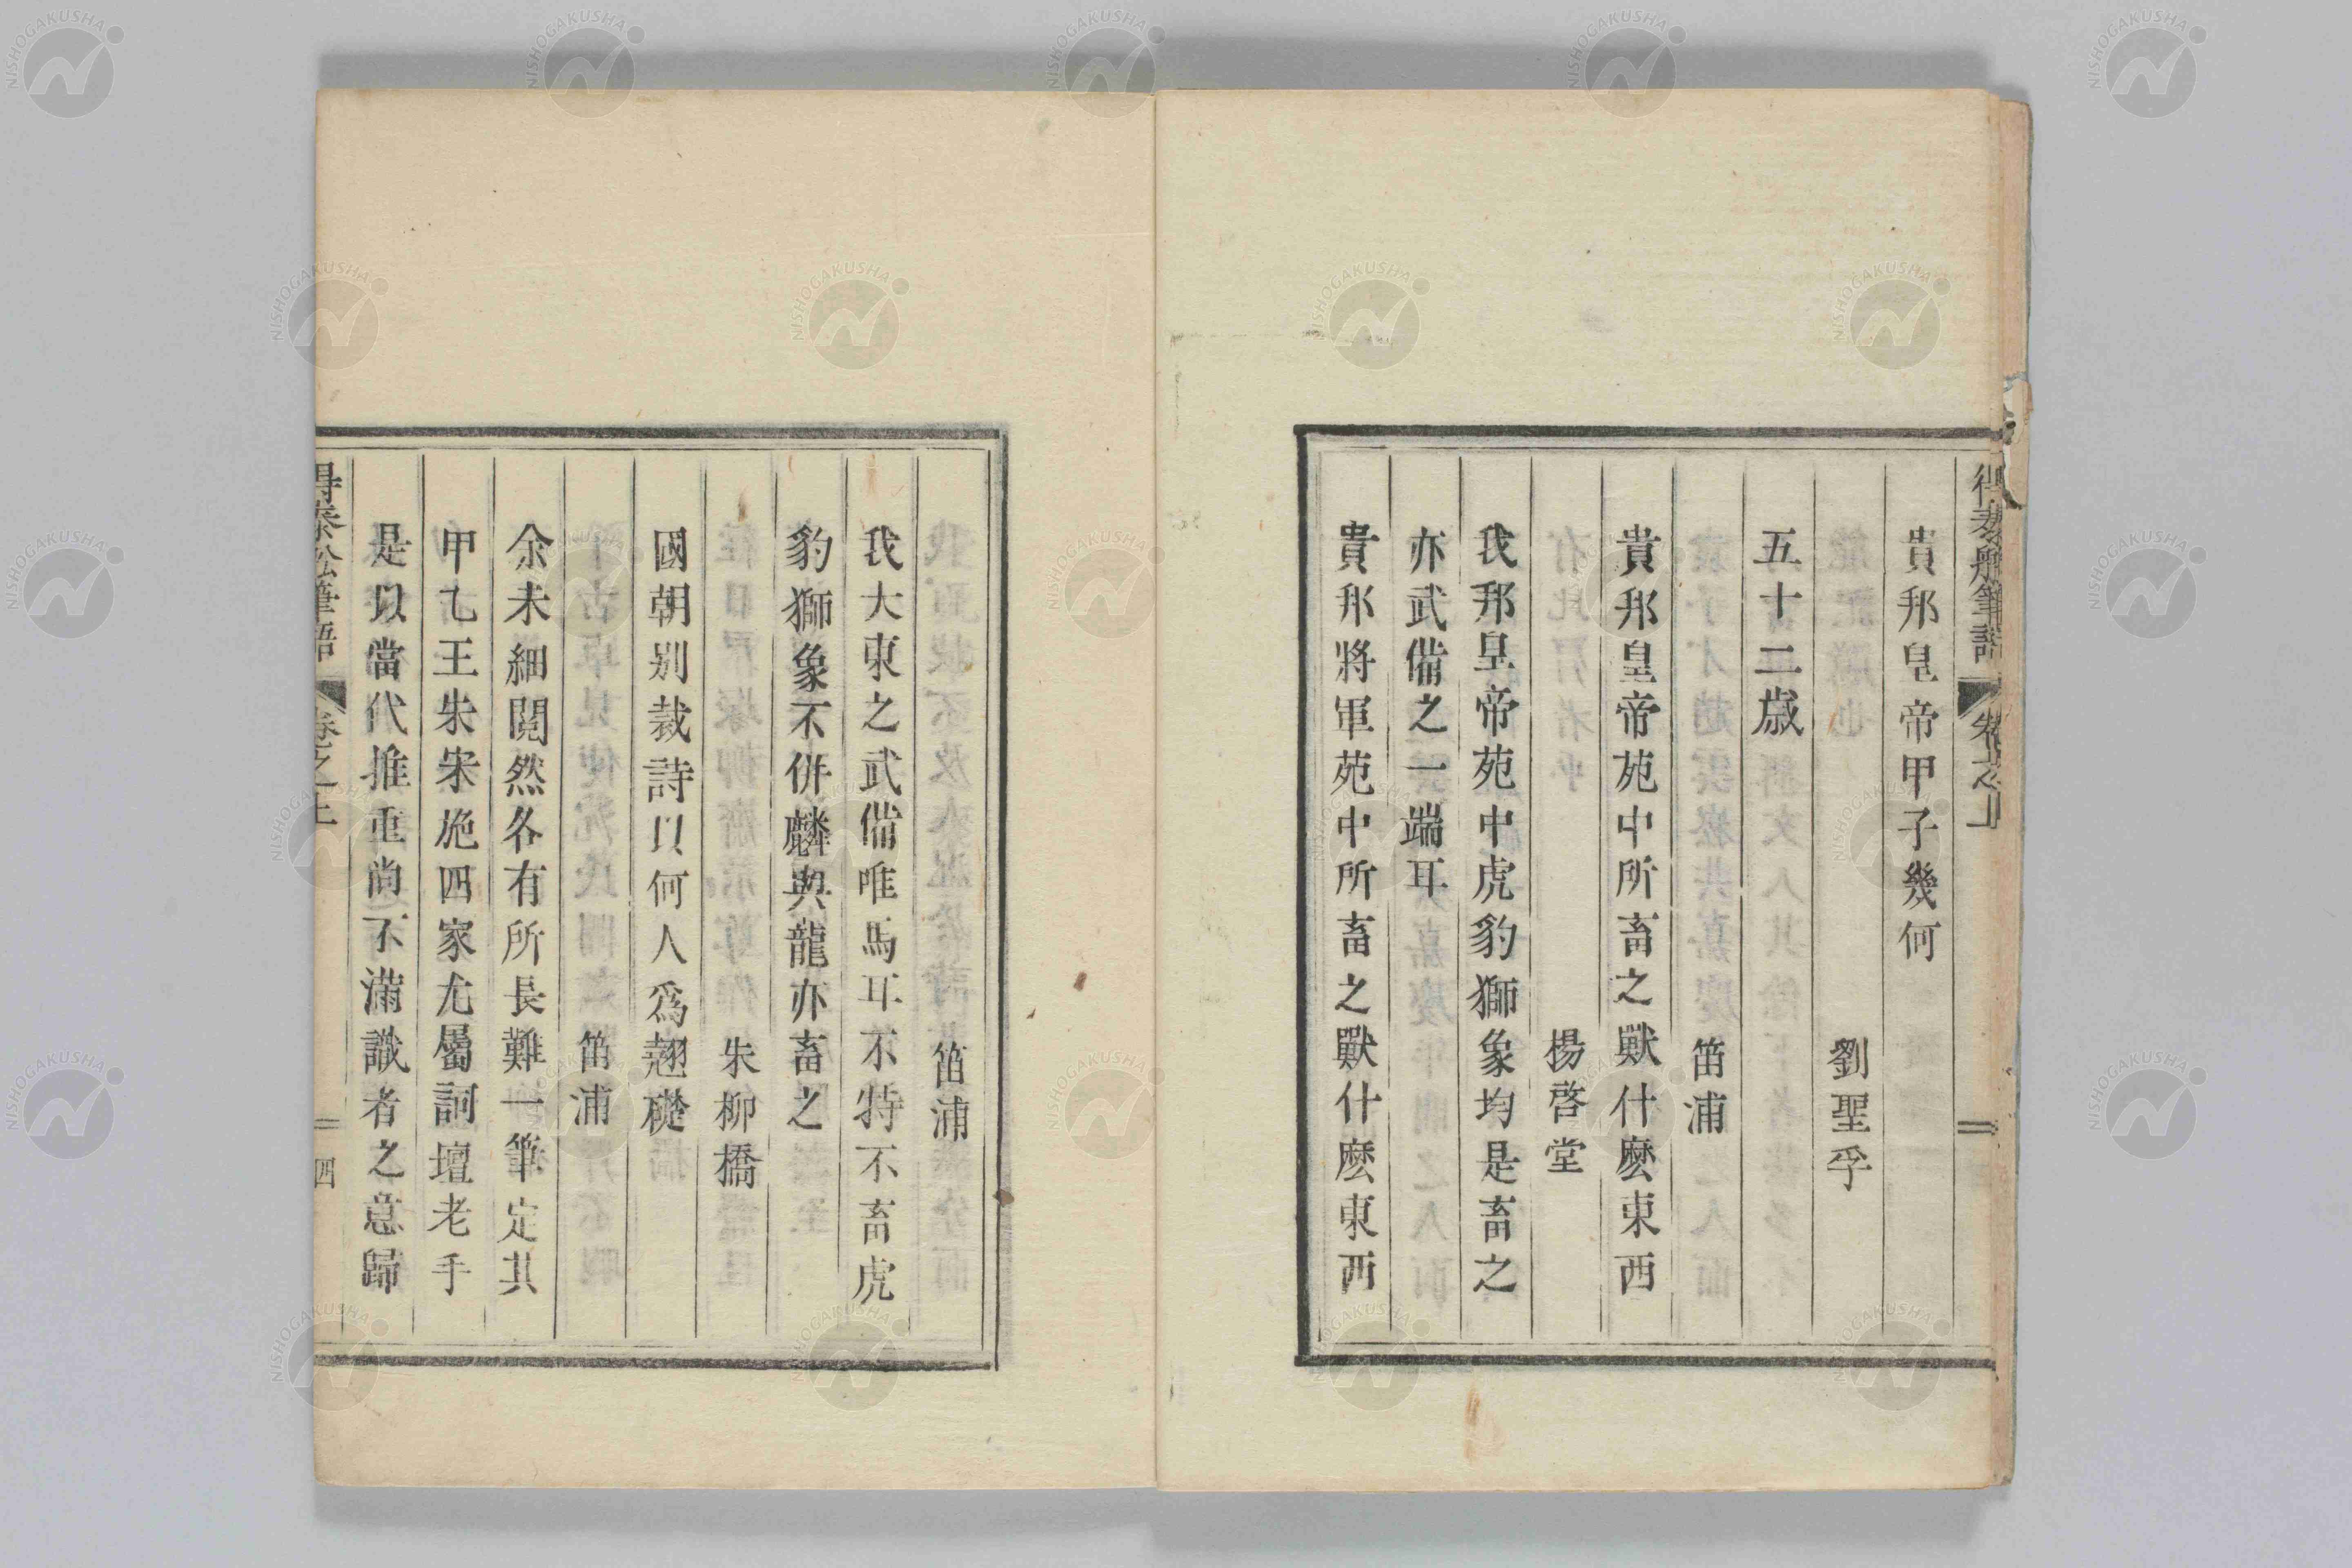 得泰船筆語 卷之上
貴邦皇帝甲子幾何
劉聖孚
五十二歲
笛浦
貴邦皇帝苑中所畜之獸什麽東西
楊啓堂
我邦皇帝苑中虎豹獅象均是畜之
亦武備之一端耳
貴邦將軍苑中所畜之獸什麽東西
笛浦
我大東之武備唯馬耳不特不畜虎
豹獅象不併麟與龍亦畜之
朱柳橋
國朝別裁詩以何人爲翹楚
笛浦
余未細閱然各有所長難一筆定其
甲乙王朱宋施四家尤屬詞壇老手
是以當代推重尚不滿識者之意歸
得泰船筆語 卷之上 四
NISHOGAKUSHA